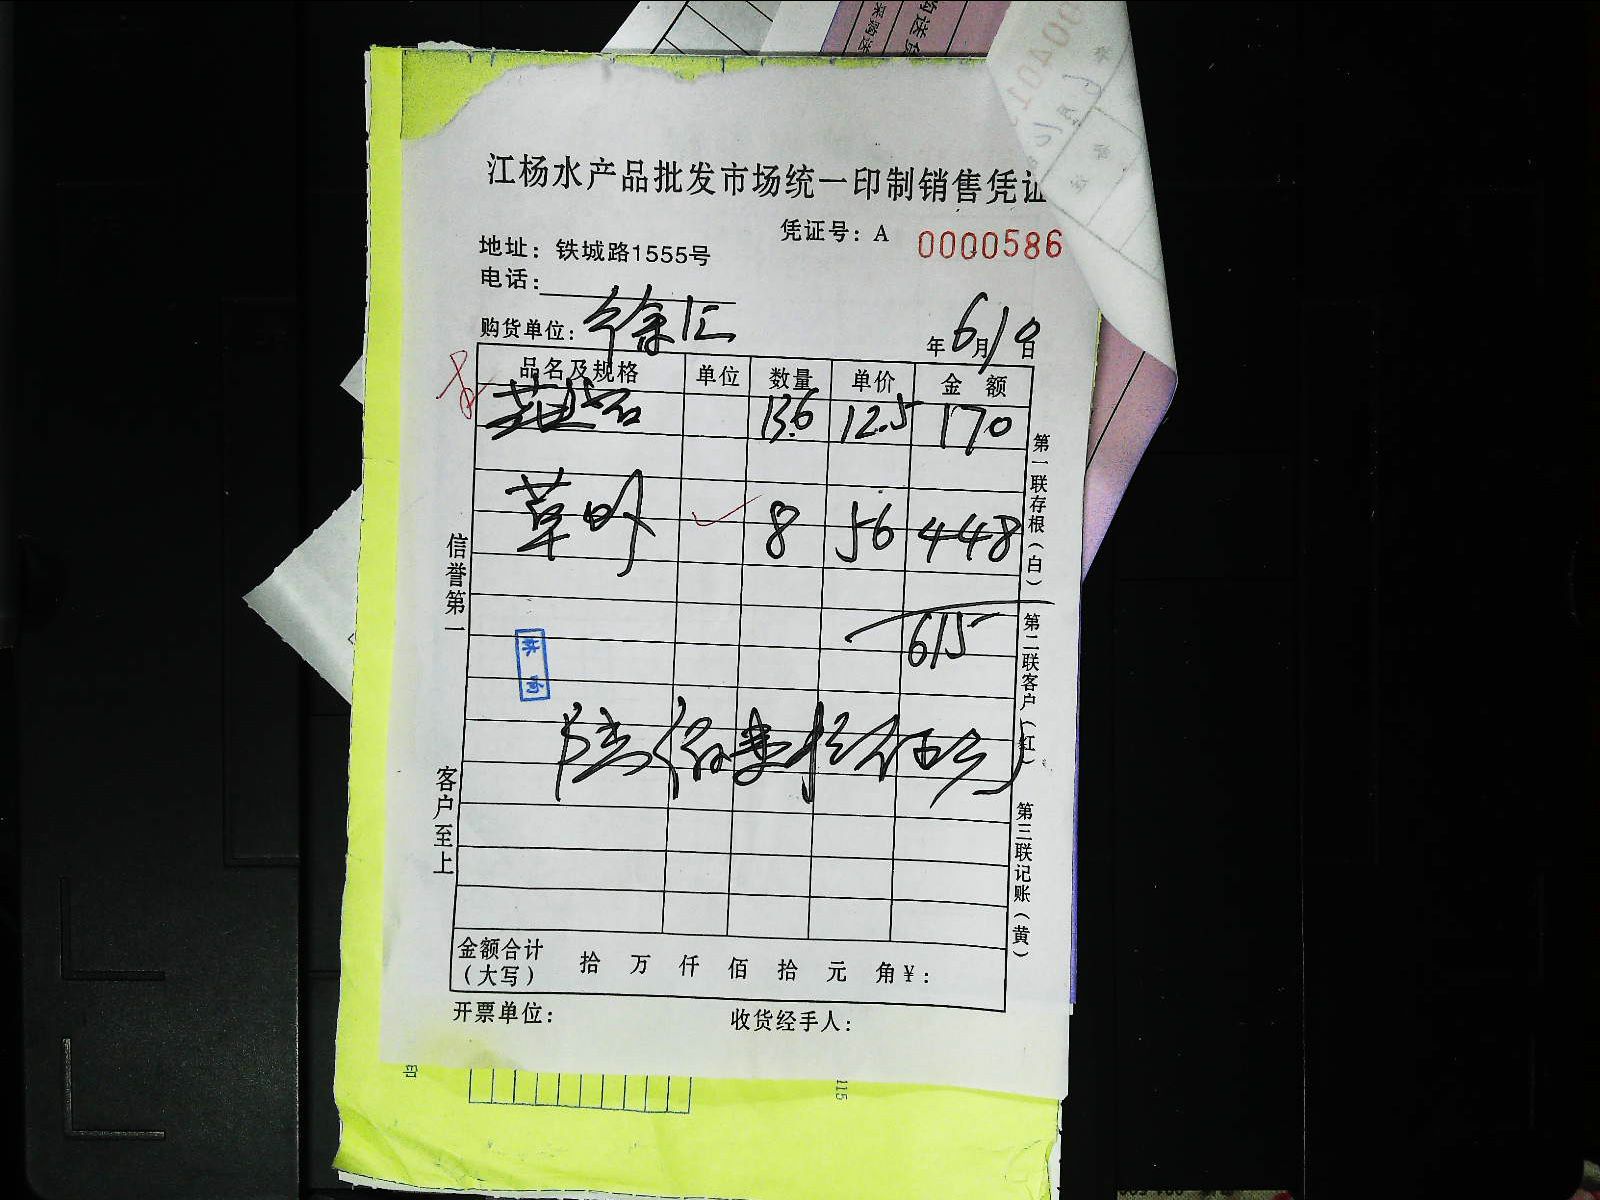 江杨水产品批发市场统一印制销售凭证
凭证号：A 0000586
地址：铁城路1555号
电话：
购货单位：徐汇 年6月10日
品名及规格 单位 数量 单价 金额
13.6 12.5 170
草 8 56 448
615
陆佰壹拾伍元
金额合计（大写） 拾 万 仟 佰 拾 元 角 ¥：
开票单位： 收货经手人：
信誉第一 客户至上
第一联存根（白） 第二联客户（红） 第三联记账（黄）
印
115